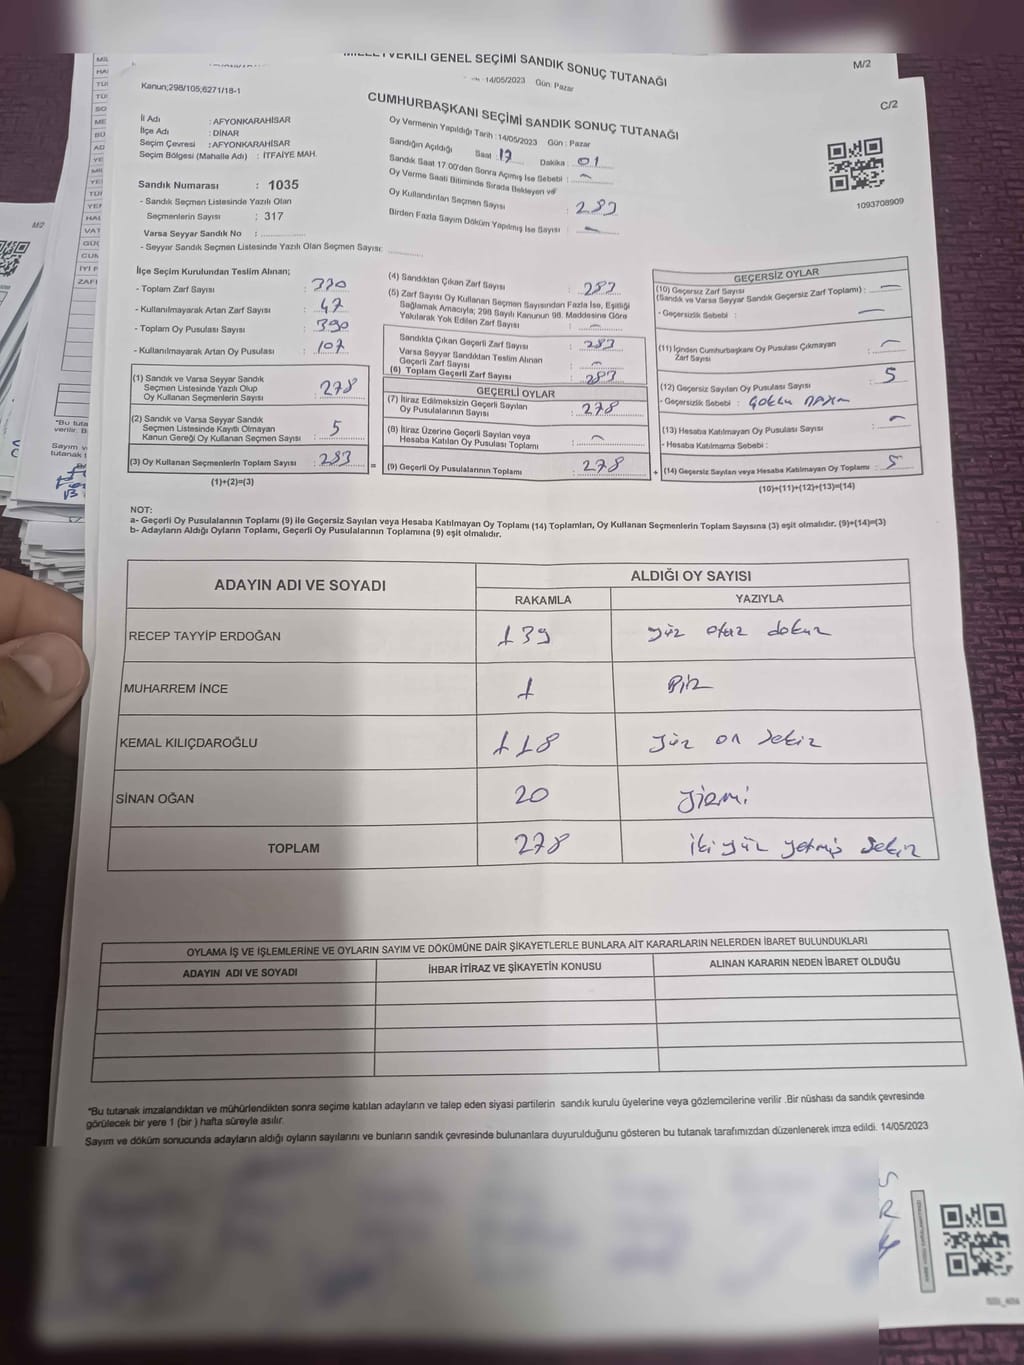 MİLLETVEKİLİ GENEL SEÇİMİ SANDIK SONUÇ TUTANAĞI
M/2
14/05/2023 Gün: Pazar
Kanun;298/105;6271/18-1
C/2
CUMHURBAŞKANI SEÇİMİ SANDIK SONUÇ TUTANAĞI
Oy Vermenin Yapıldığı Tarih :14/05/2023 Gün : Pazar
İl Adı : AFYONKARAHİSAR
İlçe Adı : DİNAR
Seçim Çevresi : AFYONKARAHİSAR
Seçim Bölgesi (Mahalle Adı) : İTFAİYE MAH.
Sandığın Açıldığı Saat : 17 Dakika : 01
Sandık Saat 17:00'den Sonra Açımış İse Sebebi :
Oy Verme Saati Bitiminde Sırada Bekleyen ve
Oy Kullandırılan Seçmen Sayısı : 283
Birden Fazla Sayım Döküm Yapılmış İse Sayısı :
1093708909
Sandık Numarası : 1035
- Sandık Seçmen Listesinde Yazılı Olan
Seçmenlerin Sayısı : 317
Varsa Seyyar Sandık No :
- Seyyar Sandık Seçmen Listesinde Yazılı Olan Seçmen Sayısı:
İlçe Seçim Kurulundan Teslim Alınan;
- Toplam Zarf Sayısı : 330
- Kullanılmayarak Artan Zarf Sayısı : 47
- Toplam Oy Pusulası Sayısı : 390
- Kullanılmayarak Artan Oy Pusulası : 107
(1) Sandık ve Varsa Seyyar Sandık
Seçmen Listesinde Yazılı Olup
Oy Kullanan Seçmenlerin Sayısı : 278
(2) Sandık ve Varsa Seyyar Sandık
Seçmen Listesinde Kayıtlı Olmayan
Kanun Gereği Oy Kullanan Seçmen Sayısı : 5
(3) Oy Kullanan Seçmenlerin Toplam Sayısı : 283
(1)+(2)=(3)
=
(4) Sandıktan Çıkan Zarf Sayısı : 283
(5) Zarf Sayısı Oy Kullanan Seçmen Sayısından Fazla İse, Eşitliği
Sağlamak Amacıyla; 298 Sayılı Kanunun 98. Maddesine Göre
Yakılarak Yok Edilen Zarf Sayısı :
Sandıkta Çıkan Geçerli Zarf Sayısı : 283
Varsa Seyyar Sandıktan Teslim Alınan
Geçerli Zarf Sayısı :
(6) Toplam Geçerli Zarf Sayısı : 283
GEÇERLİ OYLAR
(7) İtiraz Edilmeksizin Geçerli Sayılan
Oy Pusulalarının Sayısı : 278
(8) İtiraz Üzerine Geçerli Sayılan veya
Hesaba Katılan Oy Pusulası Toplamı :
(9) Geçerli Oy Pusulalarının Toplamı : 278
+
GEÇERSİZ OYLAR
(10) Geçersiz Zarf Sayısı
(Sandık ve Varsa Seyyar Sandık Geçersiz Zarf Toplamı) :
- Geçersizlik Sebebi :
(11) İçinden Cumhurbaşkanı Oy Pusulası Çıkmayan
Zarf Sayısı :
(12) Geçersiz Sayılan Oy Pusulası Sayısı : 5
- Geçersizlik Sebebi :
(13) Hesaba Katılmayan Oy Pusulası Sayısı :
- Hesaba Katılmama Sebebi :
(14) Geçersiz Sayılan veya Hesaba Katılmayan Oy Toplamı : 5
(10)+(11)+(12)+(13)=(14)
NOT:
a- Geçerli Oy Pusulalarının Toplamı (9) ile Geçersiz Sayılan veya Hesaba Katılmayan Oy Toplamı (14) Toplamları, Oy Kullanan Seçmenlerin Toplam Sayısına (3) eşit olmalıdır. (9)+(14)=(3)
b- Adayların Aldığı Oyların Toplamı, Geçerli Oy Pusulalarının Toplamına (9) eşit olmalıdır.
ADAYIN ADI VE SOYADI
ALDIĞI OY SAYISI
RAKAMLA YAZIYLA
RECEP TAYYİP ERDOĞAN 139 yüz otuz dokuz
MUHARREM İNCE 1 Bir
KEMAL KILIÇDAROĞLU 118 yüz on sekiz
SİNAN OĞAN 20 yirmi
TOPLAM 278 iki yüz yetmiş sekiz
OYLAMA İŞ VE İŞLEMLERİNE VE OYLARIN SAYIM VE DÖKÜMÜNE DAİR ŞİKAYETLERLE BUNLARA AİT KARARLARIN NELERDEN İBARET BULUNDUKLARI
ADAYIN ADI VE SOYADI İHBAR İTİRAZ VE ŞİKAYETİN KONUSU ALINAN KARARIN NEDEN İBARET OLDUĞU
*Bu tutanak imzalandıktan ve mühürlendikten sonra seçime katılan adayların ve talep eden siyasi partilerin sandık kurulu üyelerine veya gözlemcilerine verilir .Bir nüshası da sandık çevresinde
görülecek bir yere 1 (bir ) hafta süreyle asılır.
Sayım ve döküm sonucunda adayların aldığı oyların sayılarını ve bunların sandık çevresinde bulunanlara duyurulduğunu gösteren bu tutanak tarafımızdan düzenlenerek imza edildi. 14/05/2023